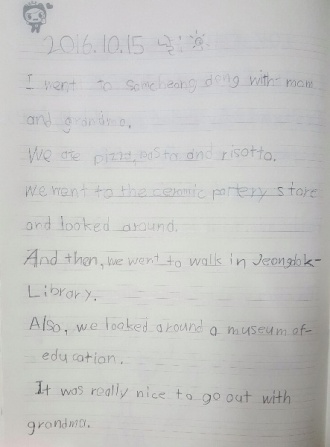 2016.10.15
I went to Samcheong dong with mom
and grandma.
We ate pizza, pasta and risotto.
We went to the ceramic pottery store
and looked around.
And then, we went to walk in Jeongdok-
Library.
Also, we looked around a museum of
education.
It was really nice to go out with
grandma.